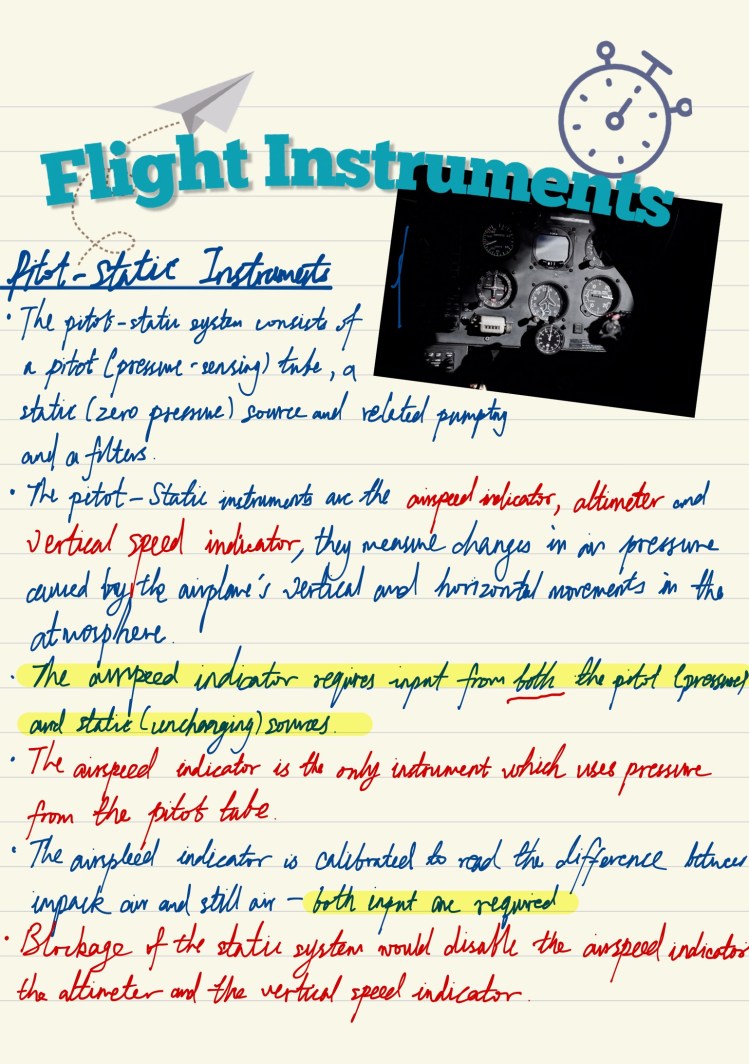 Flight Instruments
Pitot-Static Instruments
• The pitot-static system consists of
a pitot (pressure-sensing) tube, a
static (zero pressure) source and related
and a filters.
• The pitot-Static instruments are the airspeed indicator, altimeter and
vertical speed indicator, they measure changes in air pressure
caused by the airplane's vertical and horizontal movements in the
atmosphere.
• The airspeed indicator requires input from both the pitot (pressure)
and static (unchanging) sources.
• The airspeed indicator is the only instrument which uses pressure
from the pitot tube.
• The airspeed indicator is calibrated to read the difference between
air and still air – both input are required
• Blockage of the static system would disable the airspeed indicator
the altimeter and the vertical speed indicator.